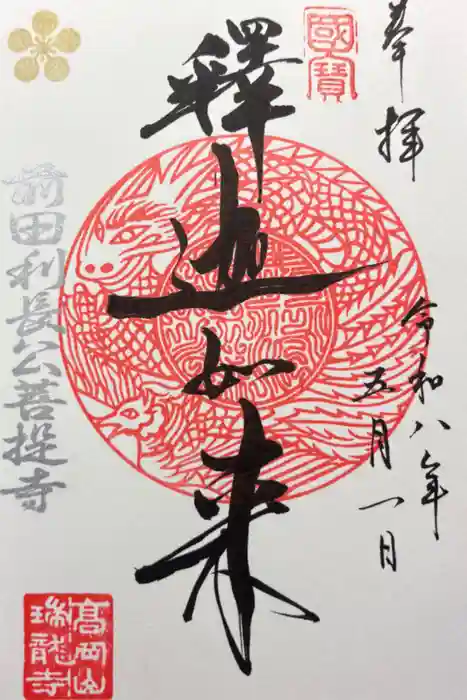 奉拝
令和八年
五月一日
國寶
釋迦如来
前田利長公菩提寺
高岡山
瑞龍寺